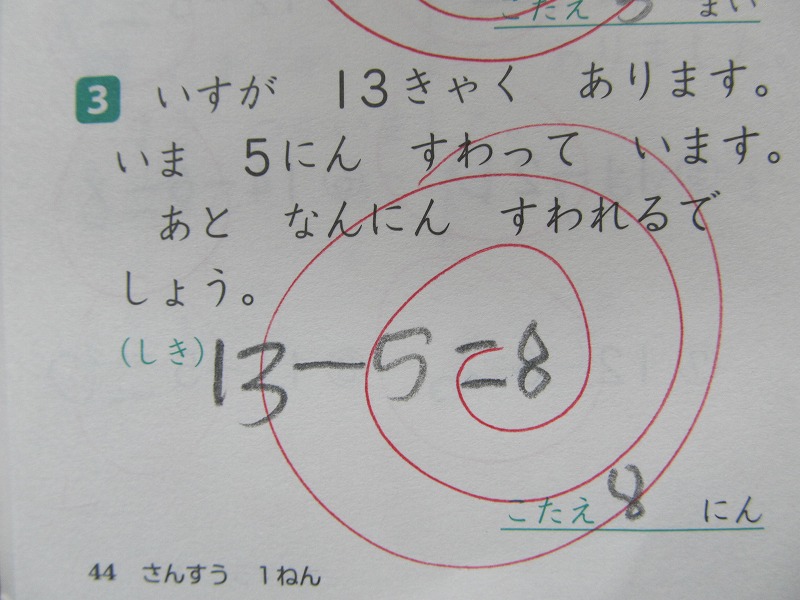 こたえ まい
3 いすが 13きゃく あります。
いま 5にん すわって います。
あと なんにん すわれるで
しょう。
(しき) 13-5=8
こたえ 8 にん
44 さんすう 1ねん